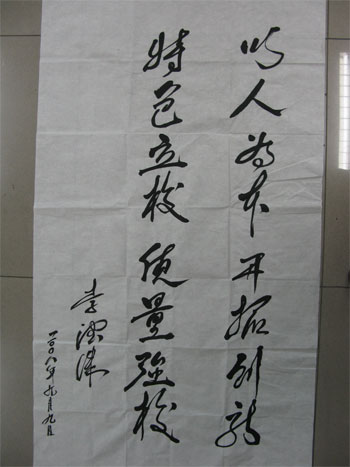 以人为本 开拓创新
特色立校 质量强校
李
二〇〇八年 月九日